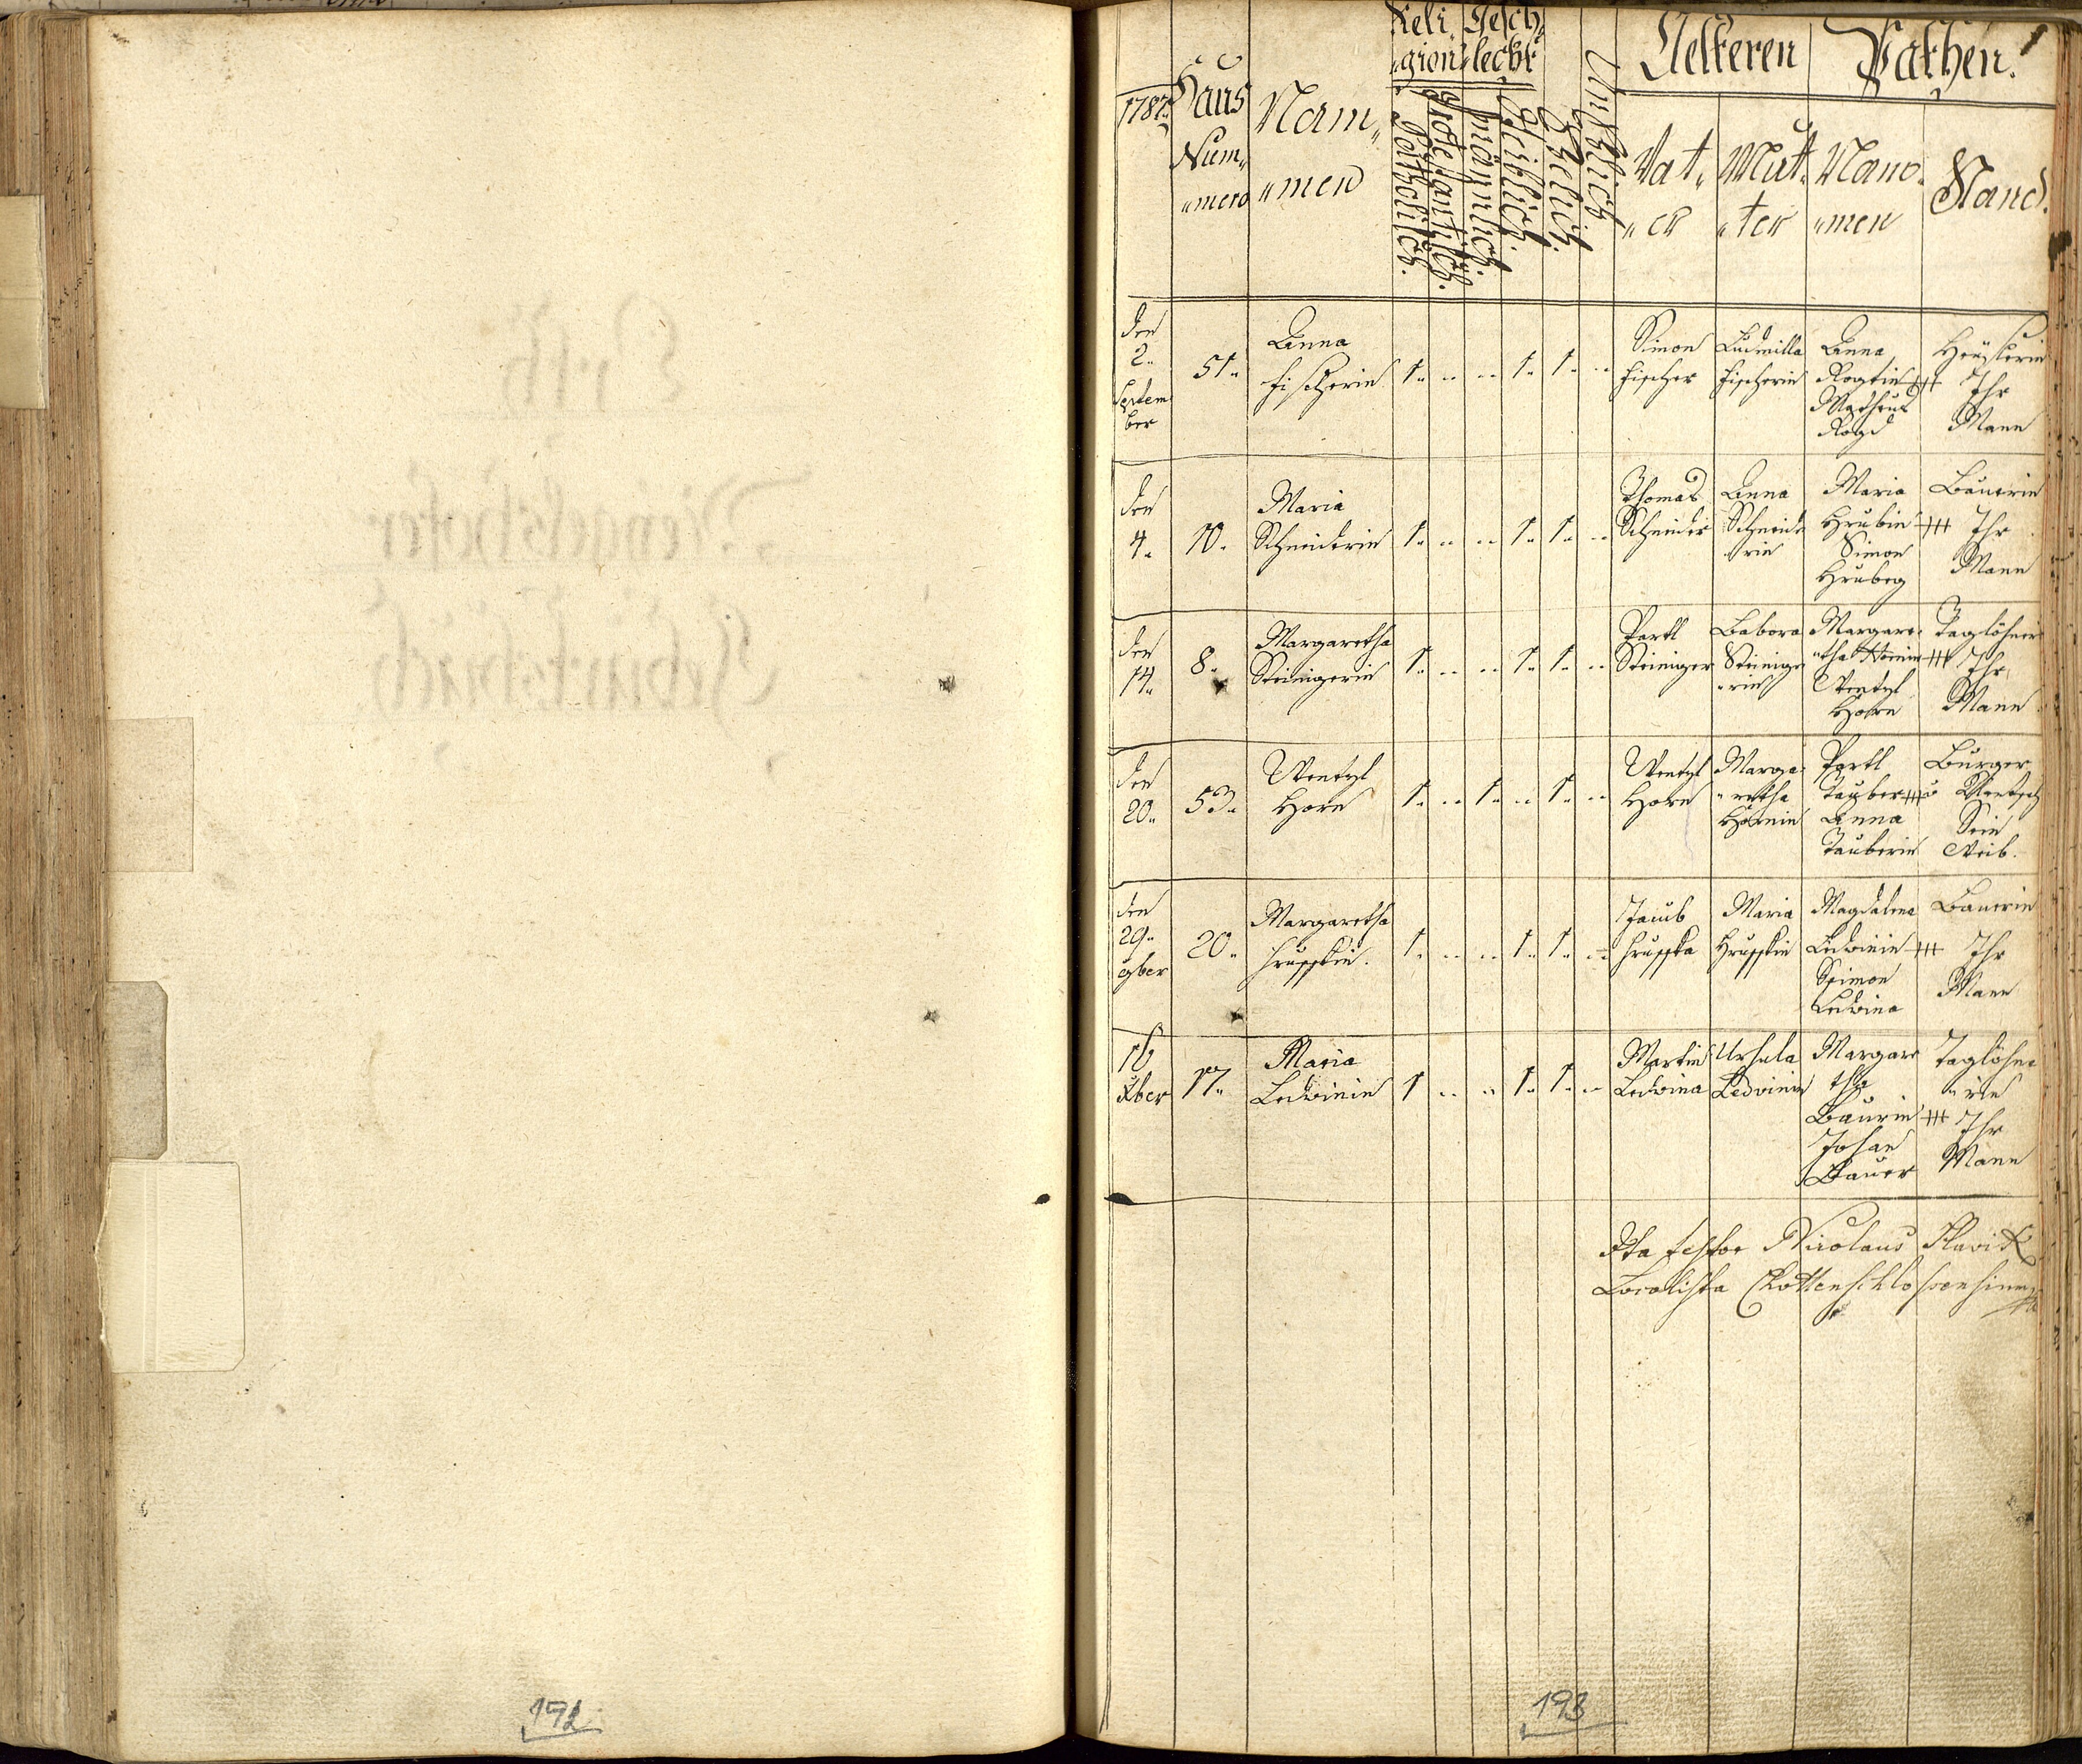 192
1
1787
Haus
Num„
„mero
Nam„
„men
Reli„
„gion
Gesch„
„lecht
Katholisch.
Protestantisch.
Männlich.
Weiblich.
Ehelich.
Unehlich
Aelteren
Vat„
„er
Mut„
„ter
Pathen.
Nam„
„men
Stand.
den
2„
Septem
ber
51„
Anna
Fischerin
1„ „ „ 1„ 1„ „
Simon
Fischer
Ludmilla
Fischerin
Anna
Matheus
Heüslerin
Ihr
Mann
den
4„
10„
Maria
Schneiderin
1„ „ „ 1„ 1„ „
Thomas
Schneider
Anna
Schneide
„rin
Maria
Hrubin
Simon
Hrubeg
Bäuerin
Ihr
Mann
den
14„
8„
Margaretha
Steinigerin
1„ „ „ 1„ 1„ „
Partl
Steiniger
Babora
Steinige
„rin
Margare„
„tha Hornin
Wentzl
Horn
Taglöhner
Ihr
Mann
den
20„
53„
Wentzl
Horn
1„ „ 1„ „ 1„ „
Wentzl
Horn
Marga„
„retha
Hornin
Partl
Tauber
Anna
Tauberin
Burger
Sein
Weib.
den
29„
9ber
20„
Margaretha
Hruschkin.
1„ „ „ 1„ 1„ „
Jacub
Hruschka
Maria
Hruschkin
Magdalena
Ledwinin
Simon
Ledwina
Bäuerin
Ihr
Mann
16
Xber
17„
Maria
Ledwinin
1 „ „ 1„ 1„ „
Martin
Ledwina
Ursula
Ledwinin
Margare
tha
Baurin
Johan
Bauer
Taglöhne
„rin
Ihr
Mann
Ita testor Nicolaus Slavik
Localista
193